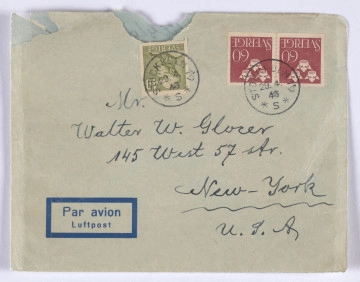 SVERIGE
60
SVERIGE
60
SVERIGE
S
S
48
Mr.
Walter W. Glocer
145 West 57 str.
New-York
U.S.A
Par avion
Luftpost